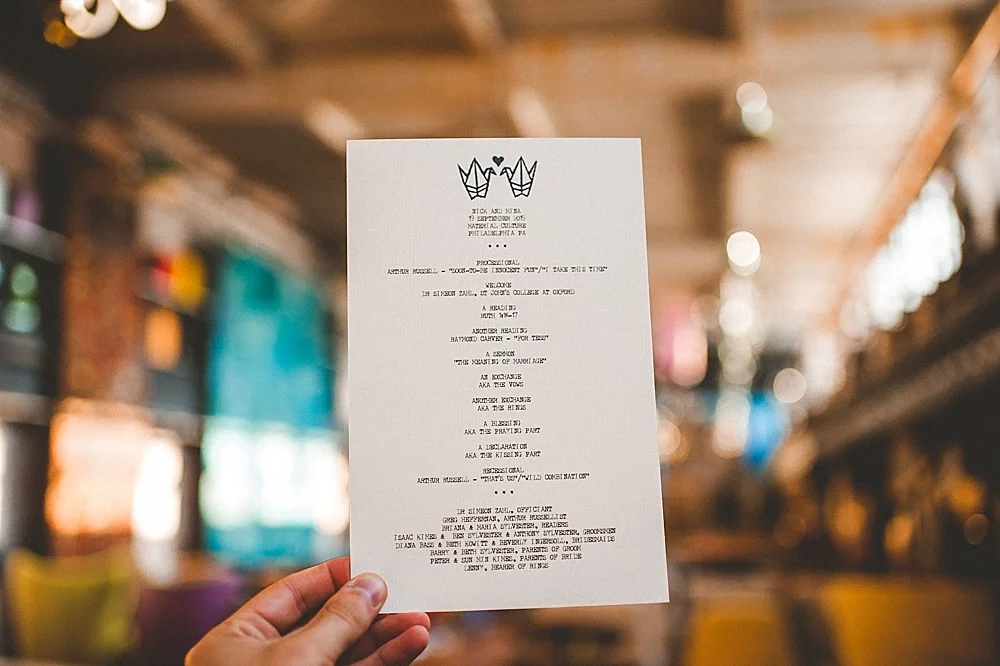 NICK AND MINA
19 SEPTEMBER 2015
MATERIAL CULTURE
PHILADELPHIA PA
• • •
PROCESSIONAL
ARTHUR RUSSELL - "SOON-TO-BE INNOCENT FUN"/"I TAKE THIS TIME"
WELCOME
DR SIMEON ZAHL, ST JOHN'S COLLEGE AT OXFORD
A READING
RUTH 1:16-17
ANOTHER READING
RAYMOND CARVER - "FOR TESS"
A SERMON
"THE MEANING OF MARRIAGE"
AN EXCHANGE
AKA THE VOWS
ANOTHER EXCHANGE
AKA THE RINGS
A BLESSING
AKA THE PRAYING PART
A DECLARATION
AKA THE KISSING PART
RECESSIONAL
ARTHUR RUSSELL - "THAT'S US"/"WILD COMBINATION"
• • •
DR SIMEON ZAHL, OFFICIANT
GREG HEFFERNAN, ARTHUR RUSSELLIST
BRIANA & MARIA SYLVESTER, READERS
ISAAC KIMES & BEN SYLVESTER & ANTHONY SYLVESTER, GROOMSMEN
DIANA BASS & BETH KOWITT & BEVERLY INGERSOLL, BRIDESMAIDS
BARRY & BETH SYLVESTER, PARENTS OF GROOM
PETER & SUN MIN KIMES, PARENTS OF BRIDE
LENNY, BEARER OF RINGS